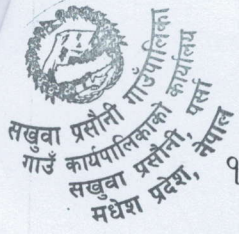 सखुवा प्रसौनी गाउँपालिका
गाउँ कार्यपालिकाको कार्यालय
सखुवा प्रसौनी, पर्सा
मधेश प्रदेश, नेपाल
१